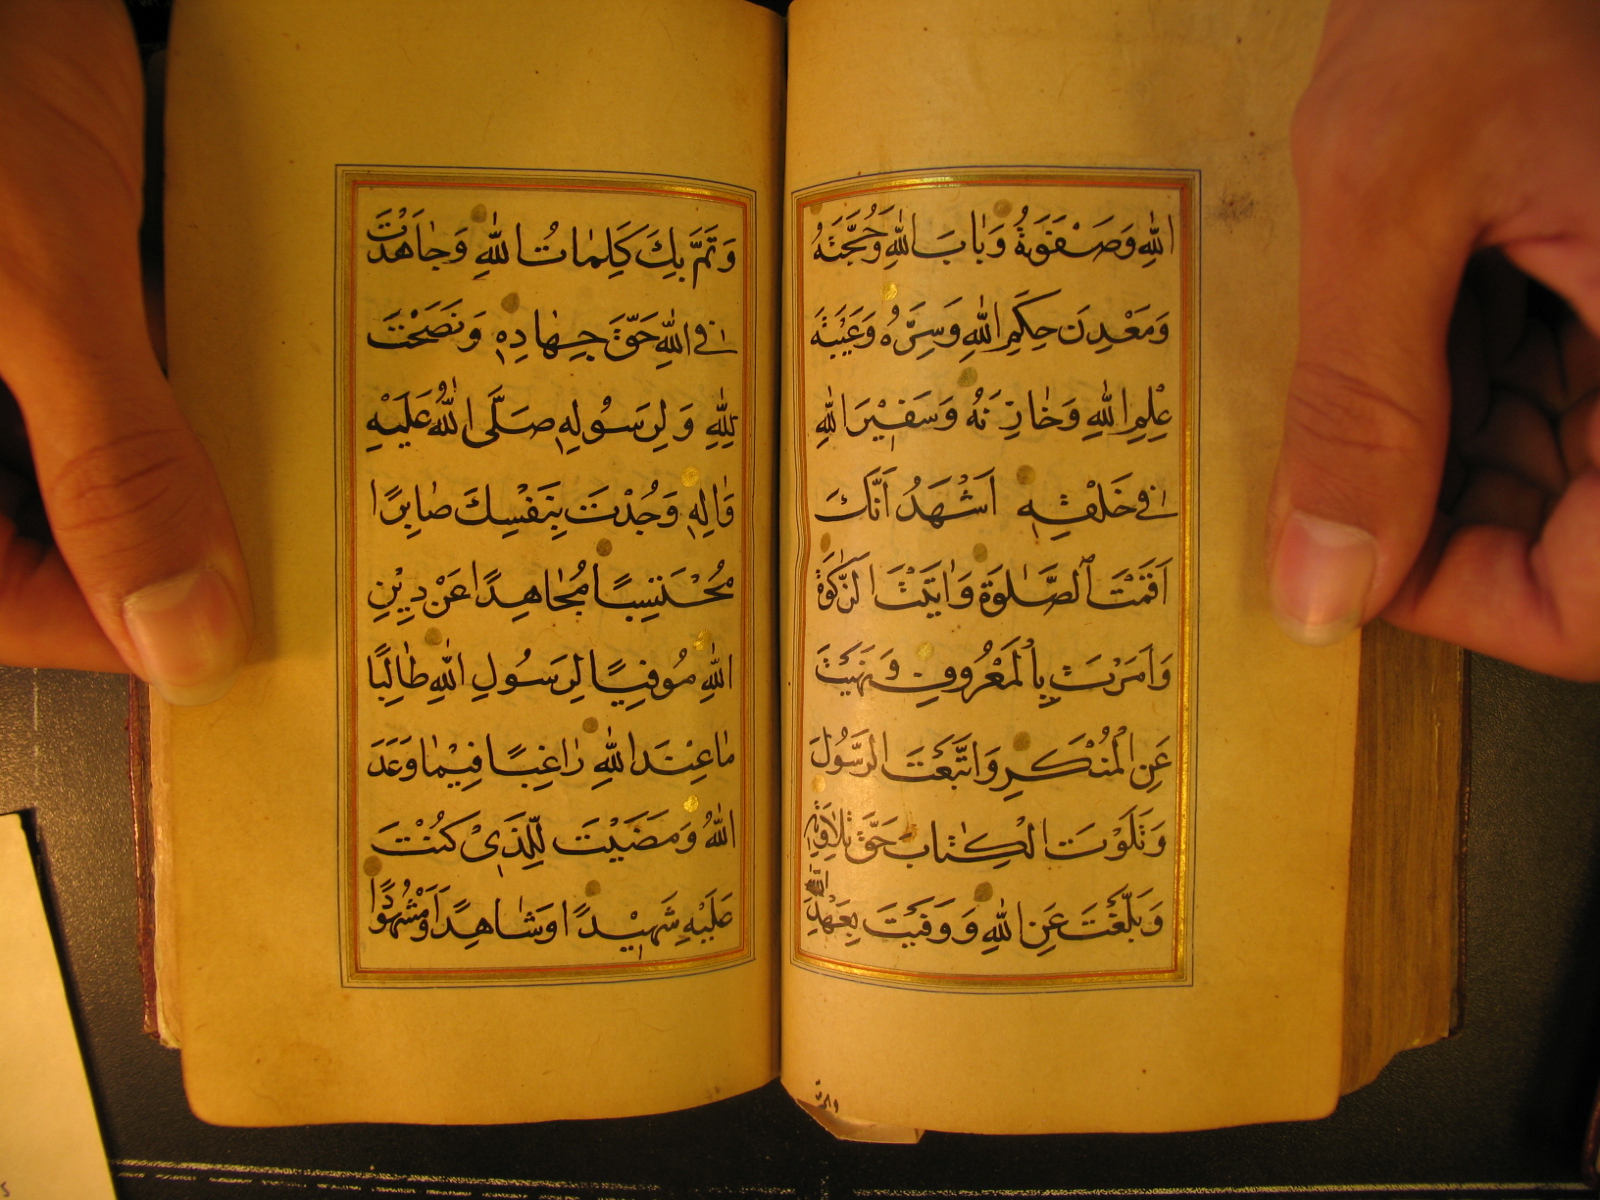 اللهِ وَصَفْوَتُهُ وَبٰابَ اللهِ وَحُجَّتَهُ
وَمَعْدِنَ حِكَمِ اللهِ وَسِرَّهُ وَعَيْبَةَ
عِلْمِ اللهِ وَخٰازِنَهُ وَسَفِيْرَ اللهِ
فِي خَلْقِهِ اَشْهَدُ اَنَّكَ
اَقَمْتَ الصَّلٰوةَ وَاٰتَيْتَ الزَّكٰوةَ
وَاَمَرْتَ بِالْمَعْرُوفِ وَنَهَيْتَ
عَنِ الْمُنْكَرِ وَاتَّبَعْتَ الرَّسُولَ
وَتَلَوْتَ الْكِتٰابَ حَقَّ تِلٰاوَتِهِ
وَبَلَّغْتَ عَنِ اللهِ وَوَفَيْتَ بِعَهْدِ اللهِ
وَتَمَّ بِكَ كَلِمٰاتُ اللهِ وَجٰاهَدْتَ
فِي اللهِ حَقَّ جِهٰادِهِ وَنَصَحْتَ
لِلّٰهِ وَلِرَسُولِهِ صَلَّى اللهُ عَلَيْهِ
وَاٰلِهِ وَجُدْتَ بِنَفْسِكَ صٰابِرًا
مُحْتَسِبًا مُجٰاهِدًا عَنْ دِيْنِ
اللهِ مُوقِيًا لِرَسُولِ اللهِ طٰالِبًا
مٰا عِنْدَ اللهِ رٰاغِبًا فِيْمٰا وَعَدَ
اللهُ وَمَضَيْتَ لِلَّذِي كُنْتَ
عَلَيْهِ شَهِيْدًا وَشٰاهِدًا وَمَشْهُودًا